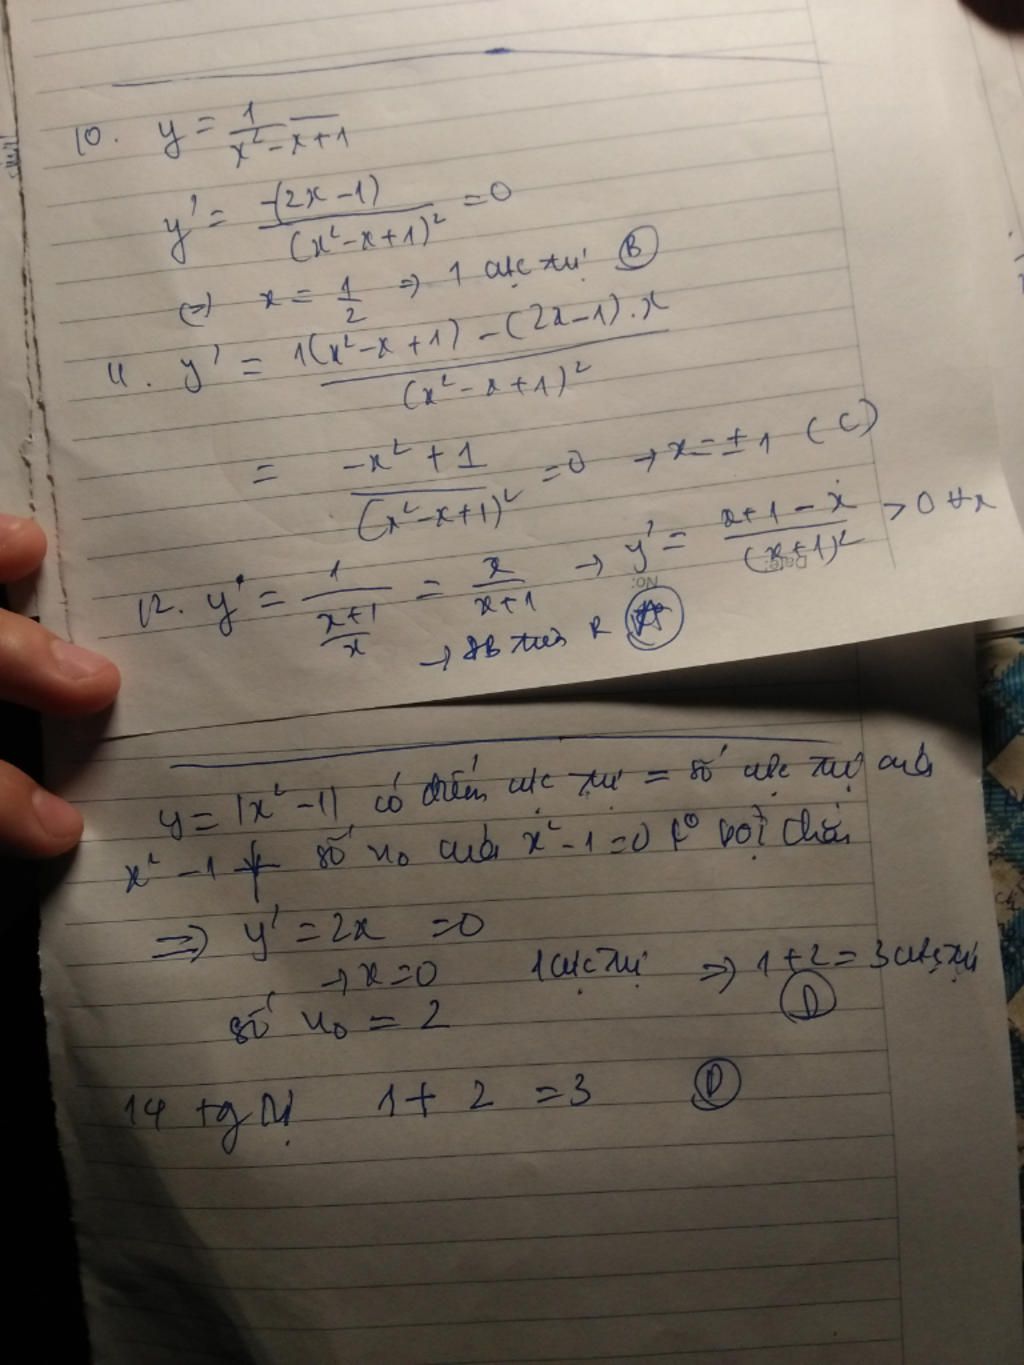 10. y = 1/(x² - x + 1)
y' = -(2x - 1)/(x² - x + 1)² = 0
(=) x = 1/2 => 1 cực trị (B)
11. y' = (1(x² - x + 1) - (2x - 1).x)/(x² - x + 1)²
= (-x² + 1)/(x² - x + 1)² = 0 → x = ± 1 (C)
12. y = 1/((x+1)/x) = x/(x+1) → y' = (x + 1 - x)/(x+1)² > 0 ∀x
No:
Date:
→ ĐB trên R (A)
y = |x² - 1| có điểm cực trị = số cực trị của
x² - 1 + số no của x² - 1 = 0 ko bội chẵn
=> y' = 2x = 0
→ x = 0 1 cực trị => 1 + 2 = 3 cực trị
(D)
số no = 2
14 tg tự 1 + 2 = 3 (D)